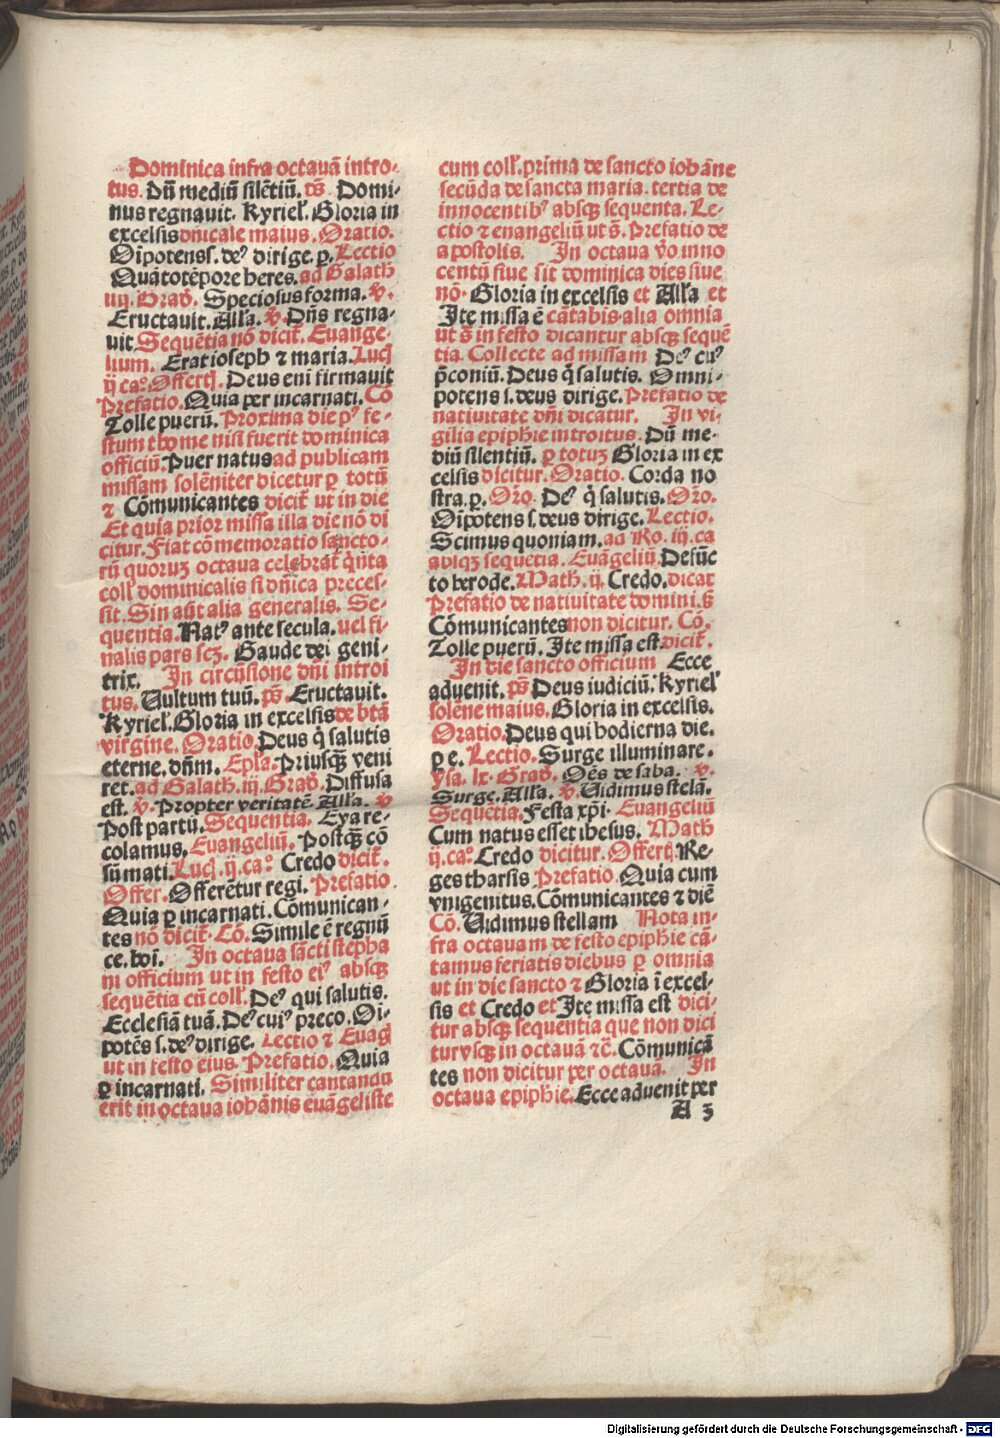 Dominica infra octauā intro-
tus. Dū mediū silētiū. vs̄. Domi-
nus regnauit. Kyriel̄. Gloria in
excelsis dn̄icale maius. Oratio.
Oīpotens s. deꝰ dirige. ꝑ. Lectio
Quāto tēpore heres. ad Galath̄
iiij. Grad̄. Speciosus forma. v̄.
Eructauit. Alĺa. v̄. Dn̄s regna-
uit Sequētia nō dicit̄. Euange-
lium. Erat ioseph ⁊ maria. Lucꝭ
ij ca° Offertꝭ. Deus eni firmauit
Prefatio. Quia per incarnati. Cō
Tolle puerū. Proxima die pꝰ fe-
stum thome nisi fuerit dominica
officiū. Puer natus ad publicam
missam solēniter dicetur ꝑ totū
⁊ Cōmunicantes dicit̄ ut in die
Et quia prior missa illa die nō di
citur. Fiat cōmemoratio sancto-
rū quoruꝫ octaua celebrat̄ qn̄ta
coll̄ dominicalis si dn̄ica preces-
sit. Sin aūt alia generalis. Se-
quentia. Natꝰ ante secula. uel fi-
nalis pars scꝫ. Gaude dei geni-
trix. In circūsione dn̄i introi
tus. Uultum tuū. ps̄. Eructauit.
Kyriel̄. Gloria in excelsis de btā
virgine. Oratio. Deus q̄ salutis
eterne. dn̄m. Epl̄a. Priusqꝫ veni
ret. ad Galath. iij. Grad̄. Diffusa
est. v̄. Propter veritatē. Alĺa. v̄
Post partū. Sequentia. Eya re-
colamus. Euangeliū. Postqꝫ cō
sūmati. Lucꝭ. ij. ca° Credo dicit̄.
Offer. Offerētur regi. Prefatio.
Quia ꝑ incarnati. Cōmunican-
tes nō dicit̄. Cō. Simile ē regnū
ce. hoī. In octaua sācti stepha
ni officium ut in festo eiꝰ absqꝫ
sequētia cū coll̄. Deꝰ qui salutis.
Ecclesiā tuā. Deꝰ cuiꝰ preco. Oī-
potēs s. deꝰ dirige. Lectio ⁊ Euag̃
ut in festo eius. Prefatio. Quia
ꝑ incarnati. Similiter cantandū
erit in octaua iohānis euāgeliste
cum coll̄. prima de sancto iohāne
secūda de sancta maria. tertia de
innocentibꝰ absqꝫ sequenta. Le-
ctio ⁊ euangeliū ut s̄. Prefatio de
apostolis. In octaua v̄o inno
centū siue sit dominica dies siue
nō. Gloria in excelsis et Alĺa et
Ite missa ē cātabis alia omnia
ut s̄ in festo dicantur absqꝫ sequē
tia. Collecte ad missam Deꝰ cuiꝰ
p̄coniū. Deus q̄ salutis. Omni-
potens s. deus dirige. Prefatio de
natiuitate dn̄i dicatur. In vi-
gilia epiph̄ie introitus. Dū me-
diū silentiū. ꝑ totuꝫ Gloria in ex
celsis dicitur. Oratio. Corda no
stra. ꝑ. Oro. Deꝰ q̄ salutis. Oro.
Oīpotens s. deus dirige. Lectio.
Scimus quoniam. ad Ro. iij. ca
absqꝫ sequētia. Euāgeliū. Defūc
to herode. Math̄. ij. Credo. dicat̄
Prefatio de natiuitate domini. s̄
Cōmunicantes non dicitur. Cō.
Tolle puerū. Ite missa est. dicit̄.
In die sancto officium Ecce
aduenit. ps̄ Deus iudiciū. Kyriel̄
solēne maius. Gloria in excelsis.
Oratio. Deus qui hodierna die.
ꝑ e. Lectio. Surge illuminare.
ysa. lx. Grad̄. Oēs de saba. v̄.
Surge. Alĺa. v̄. Uidimus stela.
Sequētia. Festa xp̄i. Euangeliū
Cum natus esset ihesus. Math̄
ij. ca° Credo dicitur. Offertꝭ. Re-
ges tharsis Prefatio. Quia cum
vnigenitus. Cōmunicantes ⁊ diē
Cō. Uidimus stellam Nota in-
fra octauam de festo epiph̄ie cā-
tamus feriatis diebus ꝑ omnia
ut in die sancto ⁊ Gloria ī excel-
sis et Credo et Ite missa est dici-
tur absqꝫ sequentia que non dici
tur vsqꝫ in octauā ⁊c̄. Cōmunicā
tes non dicitur per octaua. In
octaua epiph̄ie. Ecce aduenit per
A 3
1
Digitalisierung gefördert durch die Deutsche Forschungsgemeinschaft - DFG